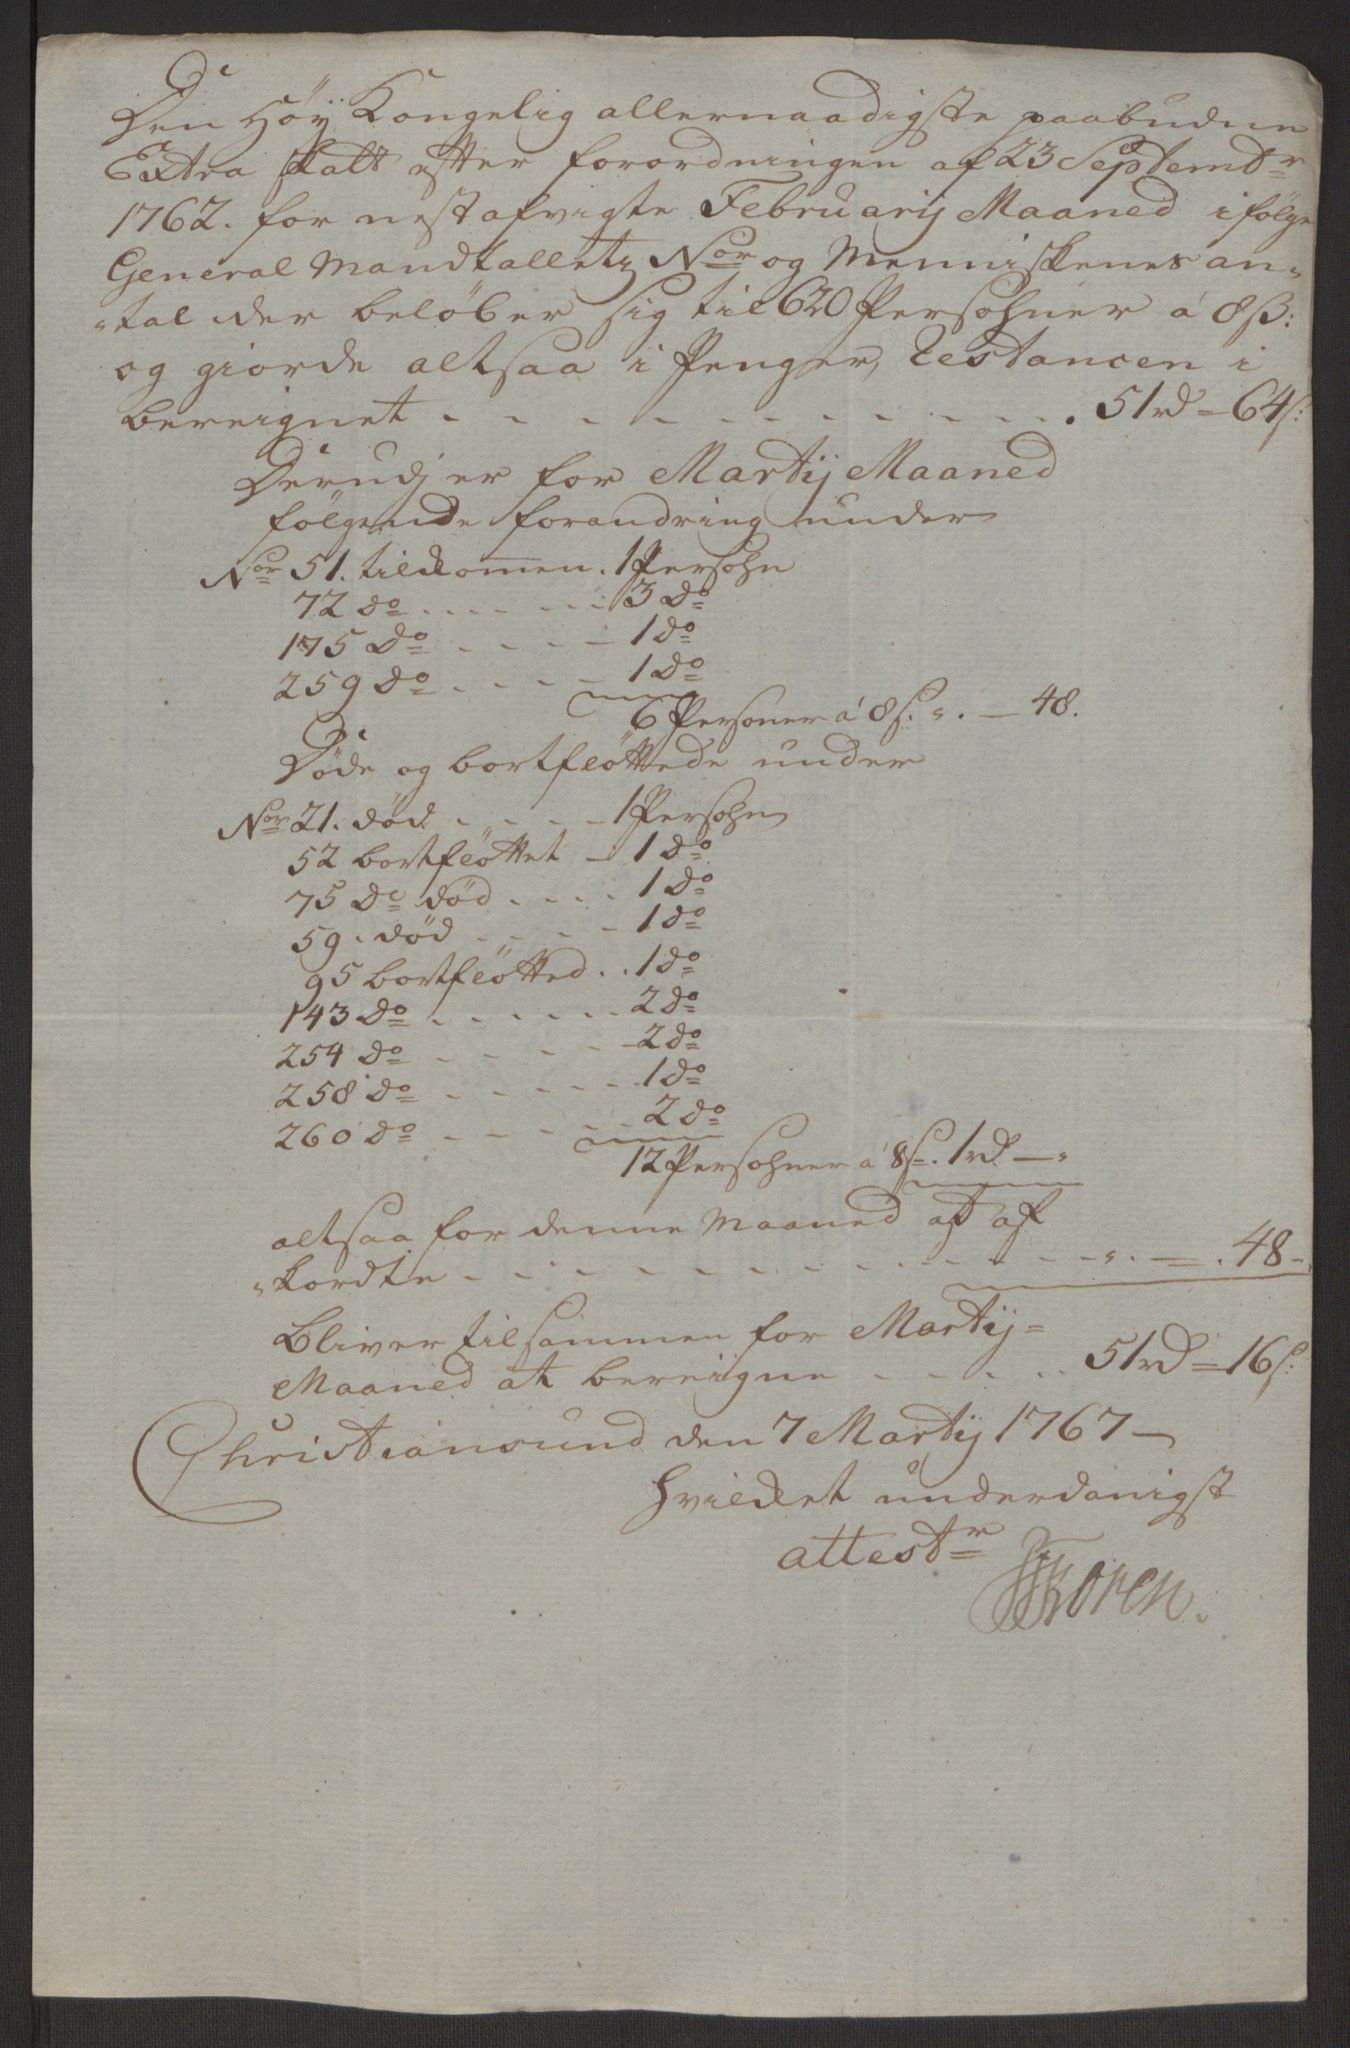 Den Höÿ Kongelig allernaadigste paabudne
Extra Skatt efter forordningen af 23 Septembr
1762. for nestafvigte Februarij Maaned ifölge
General Mandtallets Nor og Menniskenes an„
„tal der belöber sig til 620 Persohner á 8ß:
og giorde altsaa i Penger, Restancen i
bereignet - - - - - - - - - . 51rd = 64s:
Derudj er for Martij Maaned
fölgende forandring under
Nor 51. tilkomen. 1 Persohn
72 do . . . . . . 3 do
175 do . . . . - 1 do
259 do . . . . - 1 do
6 Personer á 8s. „. — 48.
Döde og bortflöttede under
Nor 21. död - - - - 1 Persohn
52 bortflöttet - 1 do
75 do död . . . . 1 do
59. död . . . - 1 do
95 bortflötted . . 1 do
143 do . . . . . . 2 do
254 do - - - - 2 do
258 do . - - - - - 1 do
260 do - - - - - 2 do
12 Persohner á 8s. 1rd —„
altsaa for denne Maaned at af
„kordte - - - - - - - - - - - „. — . 48 -
Bliver tilsammen for Martij=
Maaned at bereigne - - - - . . 51rd = 16s:
Christiansund den 7 Martij 1767 —
hvilket underdanigst
attestr
Koren.